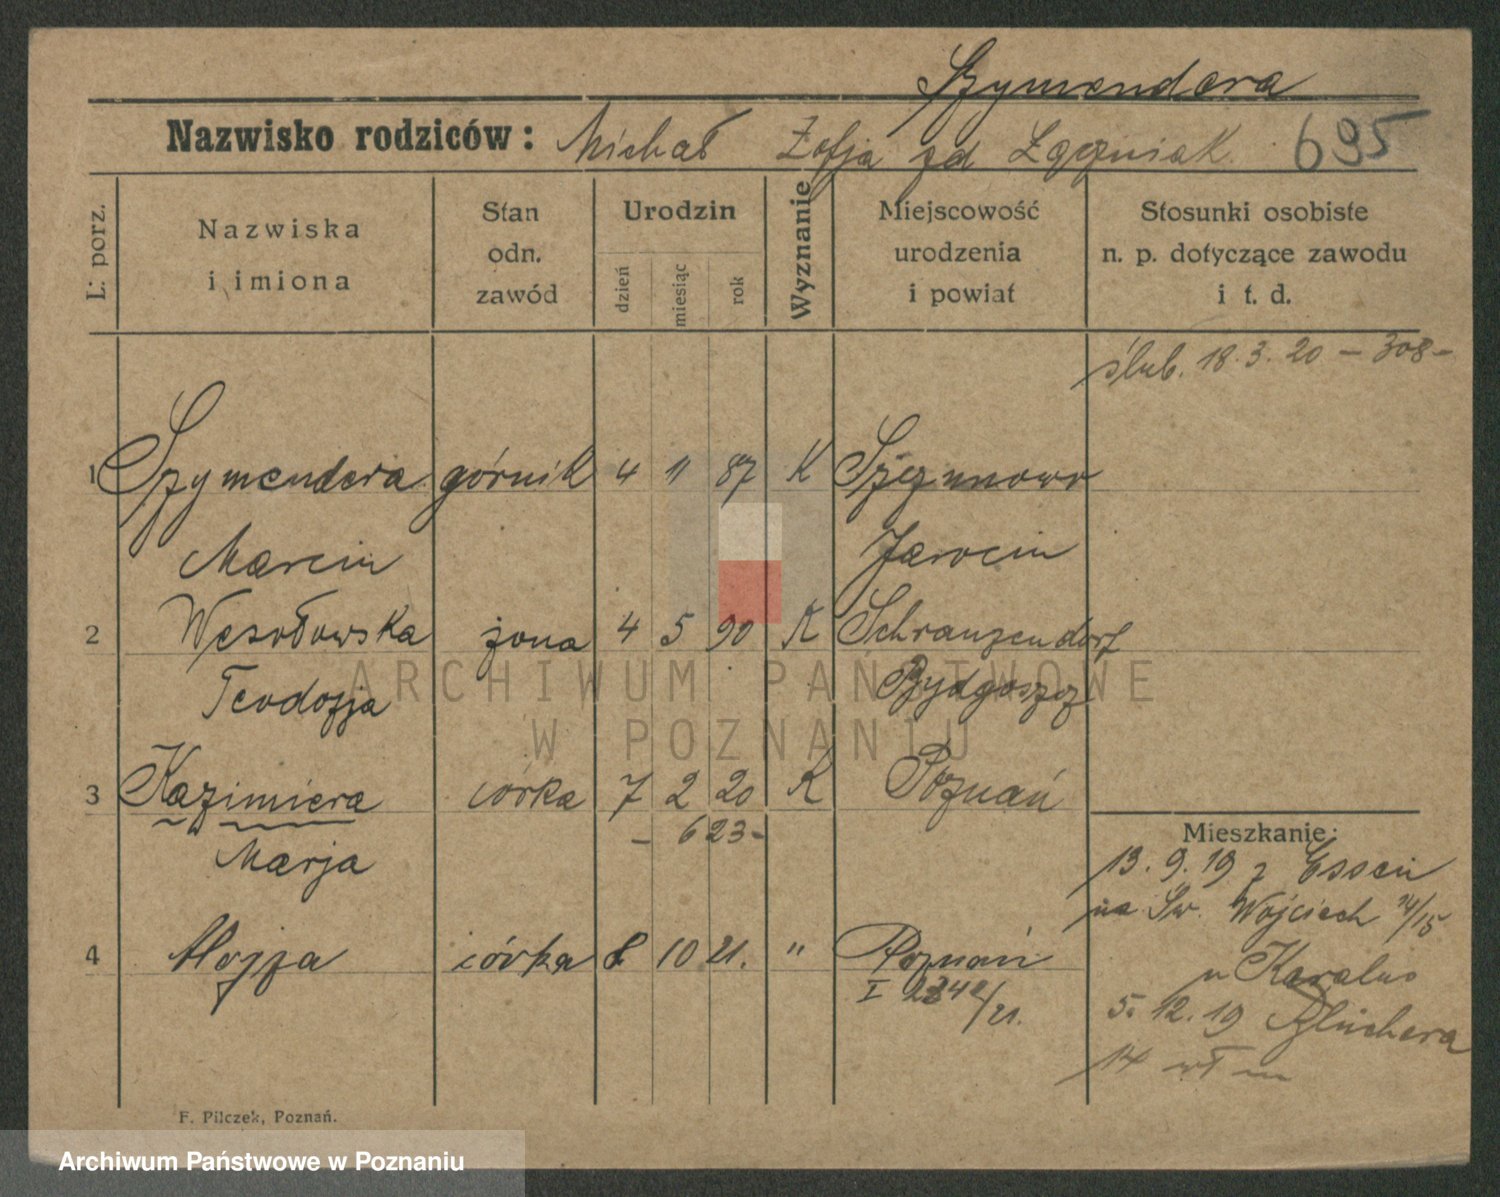 Szymendera
Nazwisko rodziców: Michał Zofja zd Łączniak 695
L: porz.
Nazwiska i imiona
Stan odn. zawód
Urodzin
dzień miesiąc rok
Wyznanie
Miejscowość urodzenia i powiat
Stosunki osobiste n. p. dotyczące zawodu i t. d.
ślub. 18. 3. 20 – 308 –
1 Szymendera górnik 4 11 87 K
Marcin Jarocin
2 Wesołowska żona 4 5 90 K Schranzendorf
Teodozja Bydgoszcz
3 Kazimiera córka 7 2 20 K Poznań
– 623 –
Marja
Mieszkanie:
13. 9. 19 z Essen
na Św. Wojciech 14/15
4 Alojza córka 8 10 21. " Poznań
I 2342/21.
u
5. 12. 19 Blüchera
14 wł m
F. Pilczek, Poznań.
ARCHIWUM PAŃSTWOWE
W POZNANIU
Archiwum Państwowe w Poznaniu